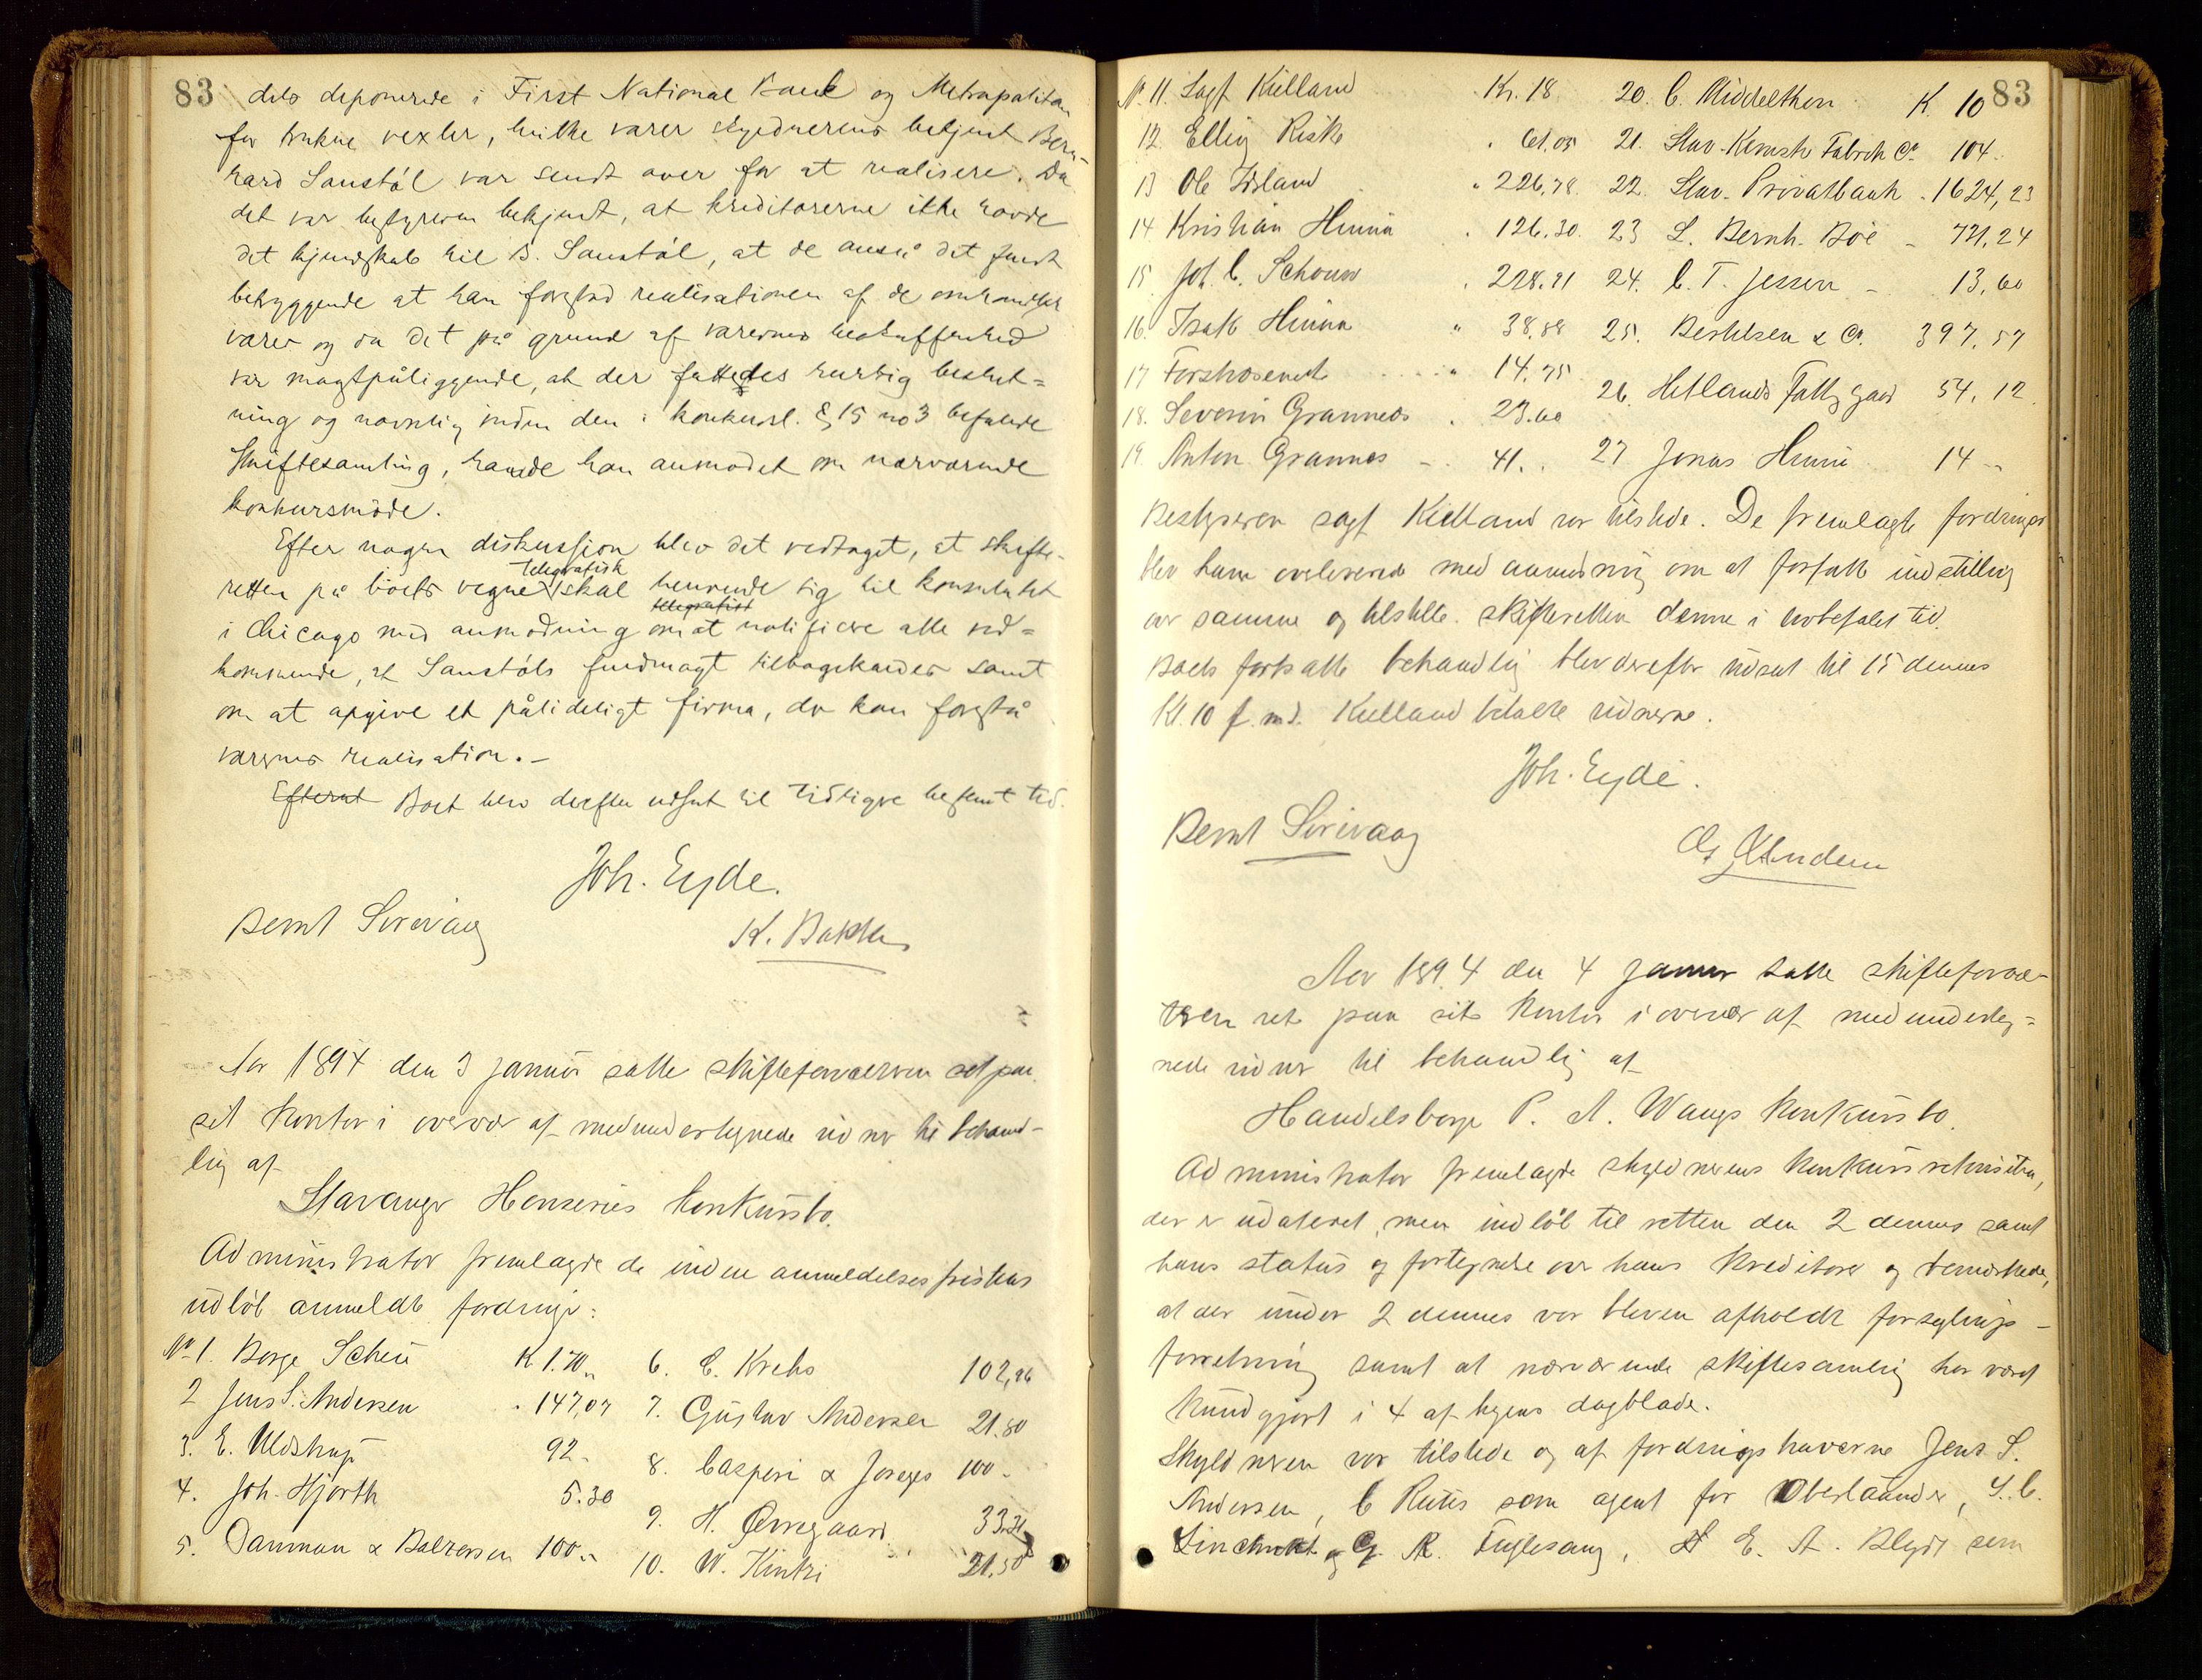 83
dels deponerede i First National Bank og Metropolitan
for trukne vexler, hvilke varer skyldnerens bekjent Bern-
hard Sanstøl var sendt over for at realisere. Da
det var bestyreren bekjendt, at kreditorerne ikke havde
det kjendskab til B. Sanstøl, at de anså det fuldt
betryggende at han forestod realisationen af de omhandlede
varer og da det på grund af varernes beskaffenhed
var magtpåliggende, at der fattedes hurtig beslut=
ning og navnlig inden den i konkursl. § 15 no 3 befalede
Skiftesamling, havde han anmodet om nærværende
konkursmøde.
Efter nogen diskussion blev det vedtaget, at skifte-
retten på boets vegne telegrafisk skal henvende sig til konsulatet
i Chicago med anmodning om at notificere alle ved=
kommende, at Sanstøls fuldmagt tilbagekaldes samt
om at opgive et pålideligt firma, der kan forestå
varernes realisation. –
Efterat Boet blev derefter udsat til tidligre bestemt tid.
Joh. Eyde.
Bernt Sirevaag
K. Bakken
Aar 1894 den 3 januar satte skifteforvalteren ret paa
sit kontor i overvær af medundertegnede vidner til behand-
ling af
Stavanger Honseries konkursbo.
Administrator fremlagde de inden anmeldelsesfristens
udløb anmeldte fordringer:
No 1. Børge Scheii K 1.70 „ 6. C. Krebs 102,96
2 Jens S. Andersen „ 147,07 7. Gustav Andersen 21.80
3. E. Uldstrup 92 - 8. Casperi & Joseys 100 -
4. Joh. Hjorth 5.30 9. H. Ørregaard 33.21
5. Danman & Balzersen 100 „ 10. W. Kintzi 21.50
83
No 11. Sagf Kielland Kr. 18 20. C. Middelthon K. 10
12. Elling Riske „ 61.05 21. Stav. Kemiske Fabrik Co. 104 -
13 Ole Idsland „ 226.78 22. Stav. Privatbank „ 1624,23
14 Kristian Hinna „ 126.30 23 L. Bernh. Bøe - 731,24
15. Joh. C. Schouw „ 228.21 24. C. T. Jessen - 13,60
16. Isak Hinna „ 38.88 25. Berthelsen & Co. 397,57
17 Forshosenet „ 14.75 26. Hetlands Fattiggaard 54,12
18. Severin Grannes „ 23.60
19. Anton Grannes - 41. 27 Jonas Hinna 14 -
Bestyreren sagf Kielland var tilstede. De fremlagte fordringer
blev ham overleveret med anmodning om at forfatte indstilling
over samme og tilstille skifteretten denne i lovbefalet tid.
Boets fortsatte behandling blev derefter udsat til 15 dennes
Kl. 10 f. m.d. Kielland betalte vidnerne.
Joh. Eyde.
Bernt Sirevaag
Aar 1894 den 4 januar satte skifteforval-
teren ret paa sit kontor i overvær af medunderteg=
nede vidner til behandling af
Handelsborger P. A. Waugs konkursbo.
Administrator fremlagde skyldnerens konkursrekvisition,
der er udateret, men indløb til retten den 2 dennes samt
hans status og fortegnelse over hans kreditorer og bemærkede,
at der under 2 dennes var bleven afholdt forseglings-
forretning samt at nærværende skiftesamling har været
kundgjort i 4 af byens dagblade.
Skyldneren var tilstede og af fordringshaverne Jens S.
Andersen, C Reies som agent for Oberlaander, S. C.
og G. A. Fuglesang, E. A. Blydt som